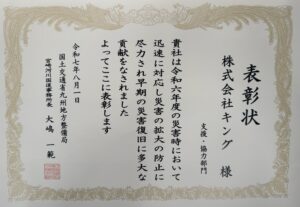 表彰状
支援・協力部門
株式会社キング 様
貴社は令和六年度の災害時において
迅速に対応し災害の拡大の防止に
尽力され早期の災害復旧に多大な
貢献をなされました
よってここに表彰します
令和七年八月一日
国土交通省九州地方整備局
宮崎河川国道事務所長 大嶋 一範